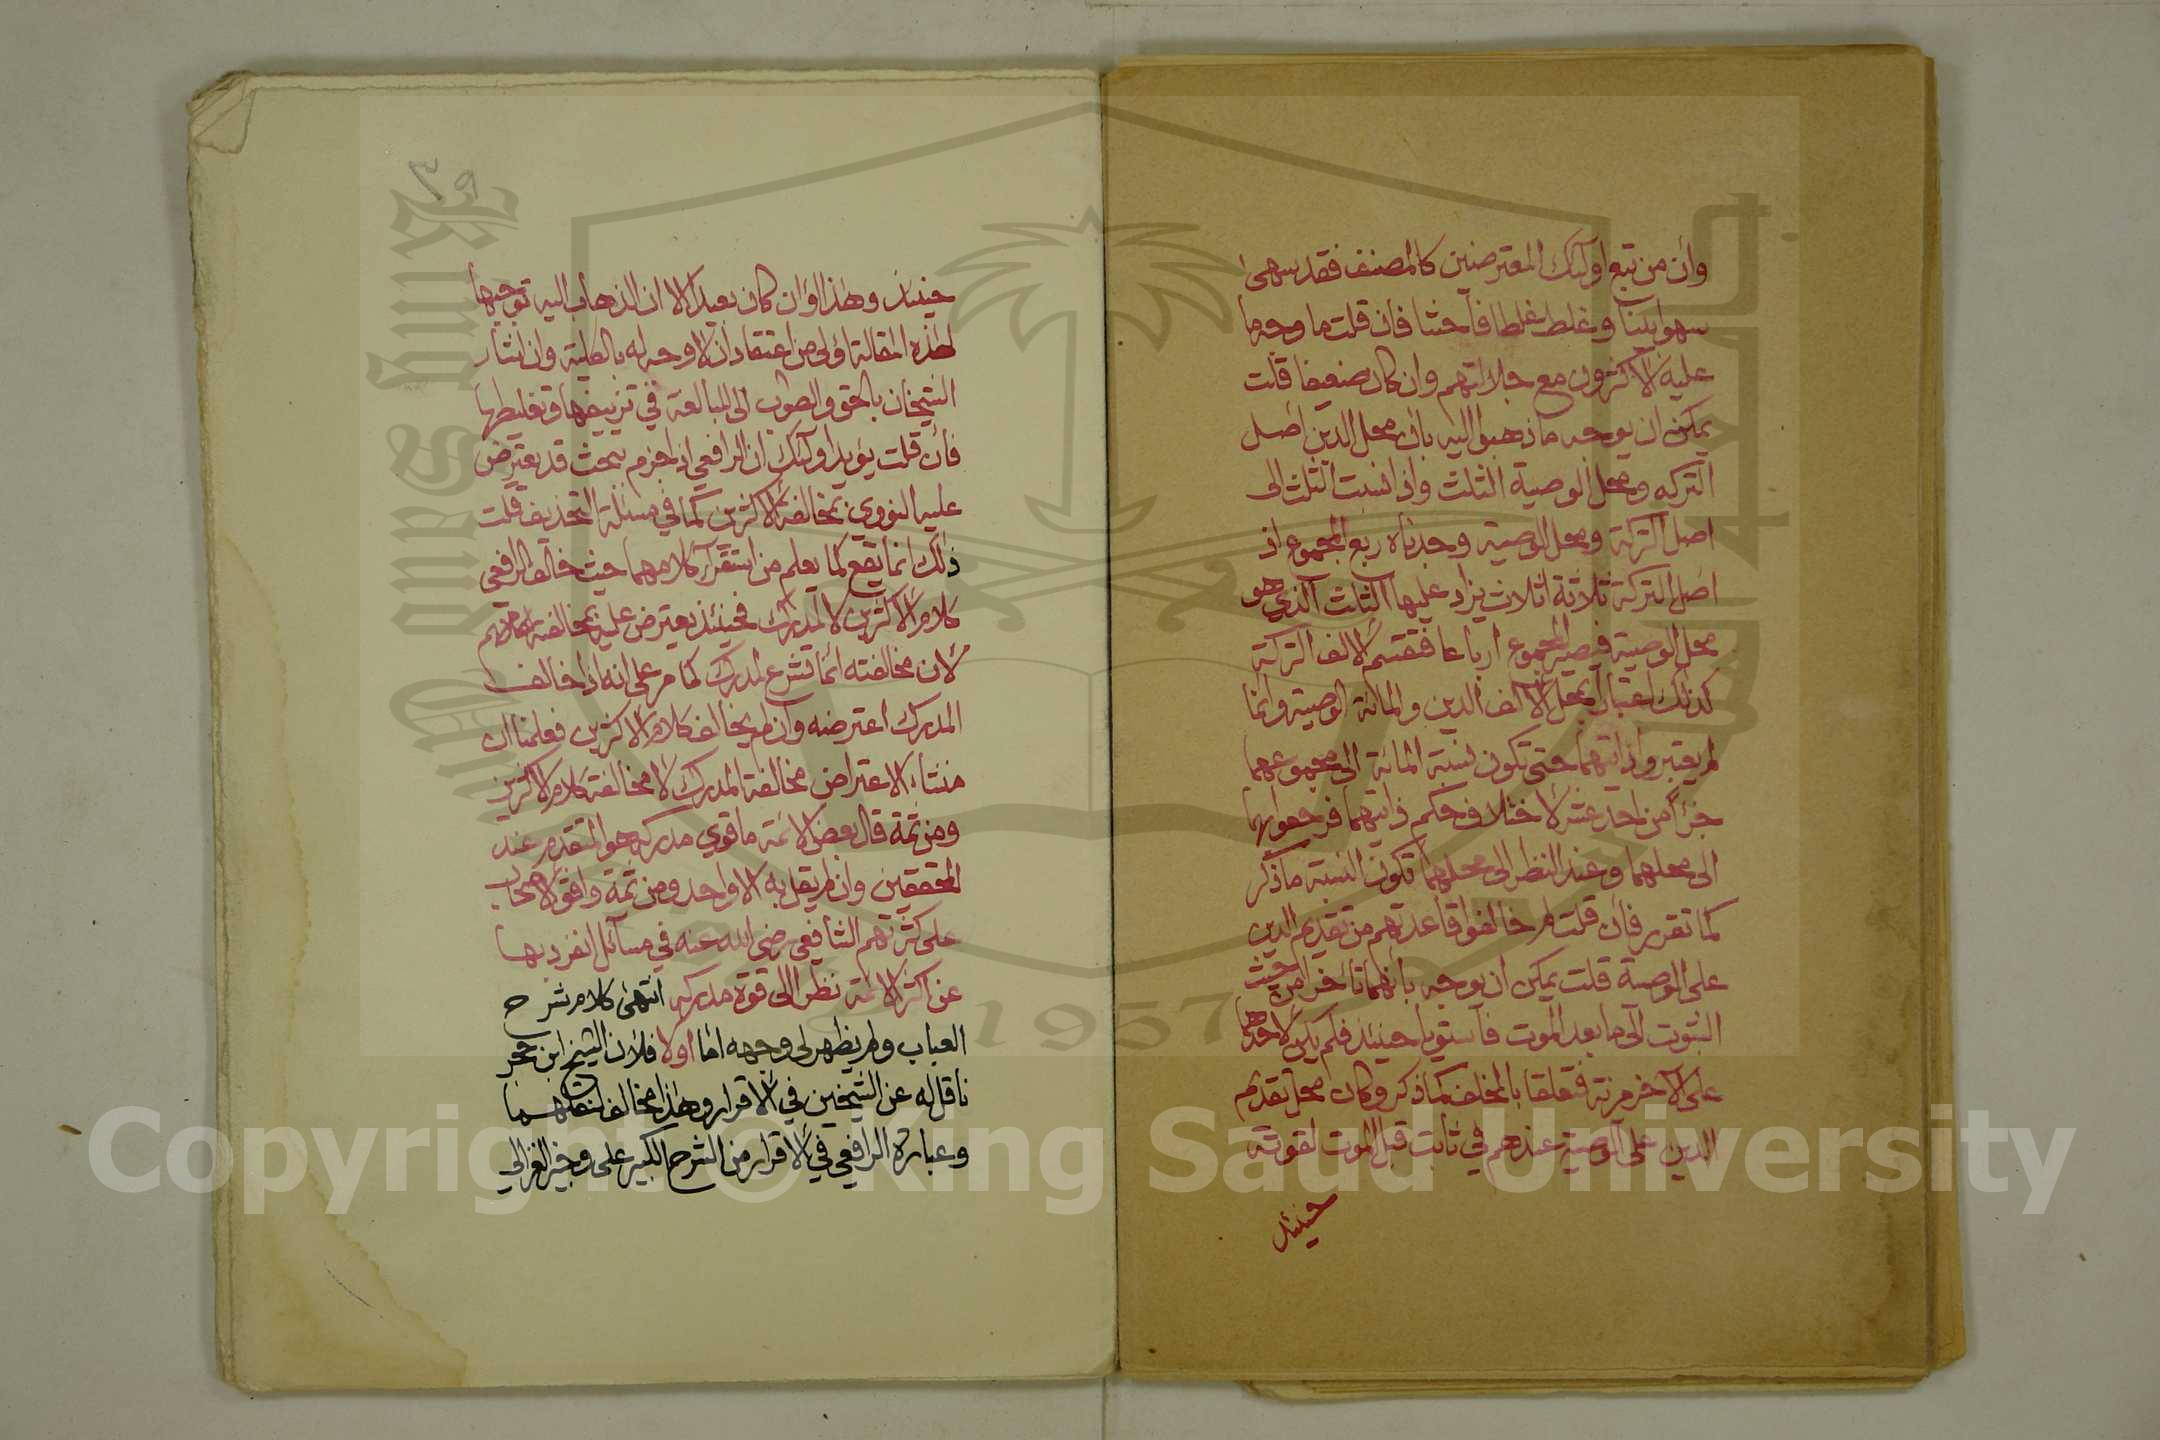 وان من تبع اولئك المعترضين كالمصنف فقد سهى
سهوا بينا وغلط غلطا فاحشا فان قلت ما وجه ما
عليه الاكثرون مع جلالتهم وان كان ضعيفا قلت
يمكن ان يوجه ما ذهبوا اليه بان محل الدين اصل
التركه ومحل الوصية الثلث واذا نسبت الثلث الى
اصل التركة ومحل الوصية وجدناه ربع المجموع اذ
اصل التركة ثلاثة اثلاث يزاد عليها الثلث الذي هو
محل الوصية فيصير المجموع ارباعا فقسم الالف التركة
كذلك اعتبارا بمحل الالف الدين والمائة الوصية وانما
لم يعتبروا ذاتيهما حتى تكون نسبة المائة الى مجموعهما
جزأ من احد عشر لاختلاف حكم ذاتيهما فرجعوا بهما
الى محلهما وعند النظر الى محلهما تكون النسبة ما ذكر
كما تقرر فان قلت لم خالفوا قاعدتهم من تقديم الدين
على الوصية قلت يمكن ان يوجه بانهما تأخرا من حيث
الثبوت الى ما بعد الموت فاستويا حينئذ فلم يكن لاحدهما
على الاخر مزية فتعلقا بالمخلف كما ذكر وكان محل تقديم
الدين على الوصية عندهم في ثابت قبل الموت لقوته
حينئذ
٣٩
حينئذ وهذا وان كان بعيدا الا ان الذهاب اليه توجيها
لهذه المقالة اولى من اعتقاد ان لا وجه له بالكلية وان اشار
الشيخان بالحق والصواب الى المبالغة في تزييفها وتغليطها
فان قلت يؤيد اولئك ان الرافعي اذا جزم ببحث قد يعترض
عليه النووي بمخالفة الاكثرين كما في مسئلة التحذيف قلت
ذلك انما يقع كما يعلم من استقرآء كلامهما حيث خالف الرافعي
كلام الاكثرين لا لمدرك فحينئذ يعترض عليه بمخالفة كلامهم
لان مخالفته انما تشرع لمدرك كما مر على انه اذا خالف
المدرك اعترضه وان لم يخالف كلام الاكثرين فعلمنا ان
منشاء الاعتراض مخالفة المدرك لا مخالفة كلام الاكثرين
ومن ثمة قال بعض الائمة ما قوي مدركه هو المتقدم عند
المحققين وان لم يقل به الا واحد ومن ثمة وافق الاصحاب
على كثرتهم الشافعي رضي الله عنه في مسائل انفرد بها
عن اكثر الائمة نظرا الى قوة مدركه انتهى كلام شرح
العباب ولم يظهر لي وجهه اما اولا فلان الشيخ ابن حجر
ناقل له عن الشيخين في الاقرار وهذا مخالف لنقلهما
وعبارة الرافعي في الاقرار من الشرح الكبير على وجيز الغزالي
1957
Copyright © King Saud University
King Saud University